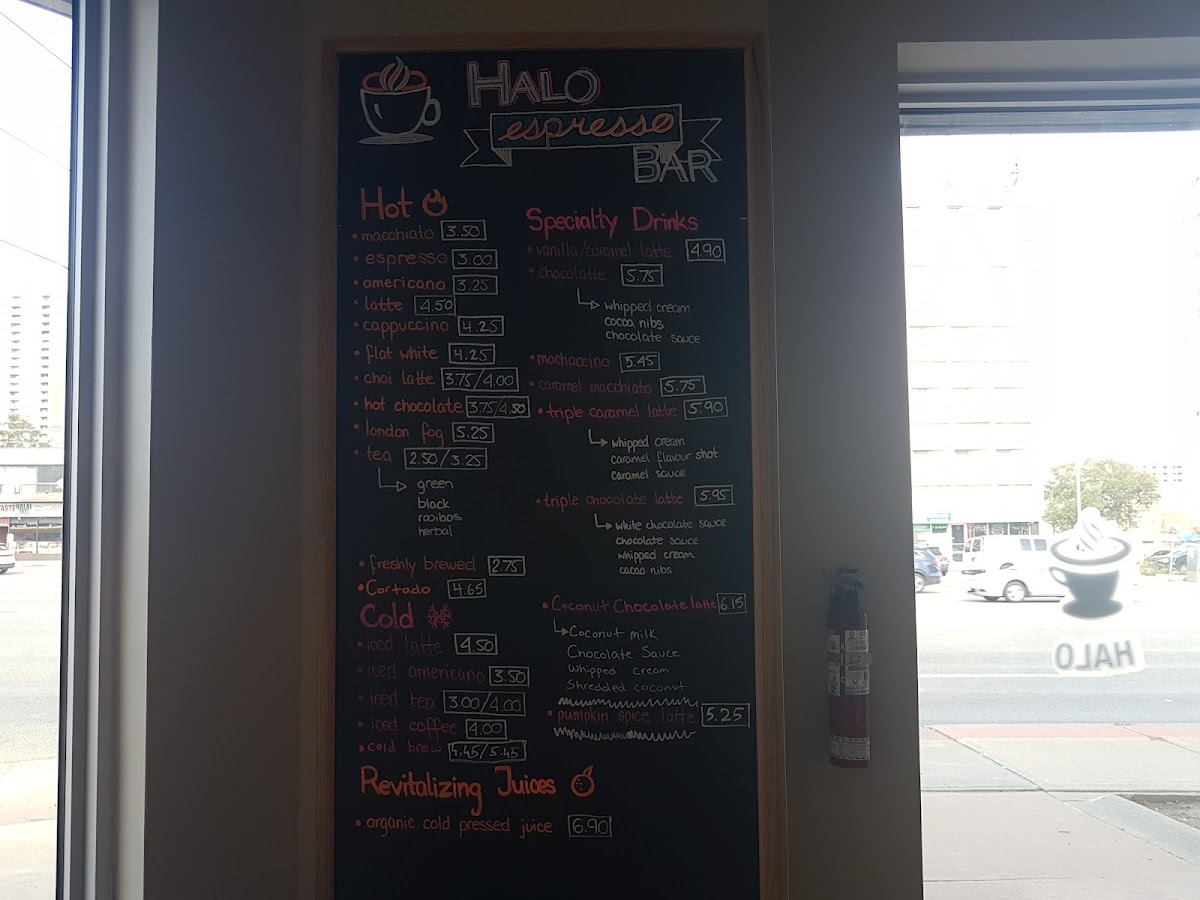 HALO
espresso
BAR
Hot
• macchiato 3.50
• espresso 3.00
• americano 3.25
• latte 4.50
• cappuccino 4.25
• flat white 4.25
• chai latte 3.75/4.00
• hot chocolate 3.75/4.50
• london fog 5.25
• tea 2.50/3.25
green
black
rooibos
herbal
• freshly brewed 2.75
• Cortado 4.65
Cold
• iced latte 4.50
• iced americano 3.50
• iced tea 3.00/4.00
• iced coffee 4.00
• cold brew 4.45/5.45
Revitalizing Juices
• organic cold pressed juice 6.90
Specialty Drinks
• vanilla/caramel latte 4.90
• chocolatte 5.75
whipped cream
cocoa nibs
chocolate sauce
• mochaccino 5.45
• caramel macchiato 5.75
• triple caramel latte 5.90
whipped cream
caramel flavour shot
caramel sauce
• triple chocolate latte 5.95
white chocolate sauce
chocolate sauce
whipped cream
cacao nibs
• Coconut Chocolate latte 6.15
Coconut milk
Chocolate Sauce
Whipped cream
Shredded coconut
• pumpkin spice latte 5.25
HALO